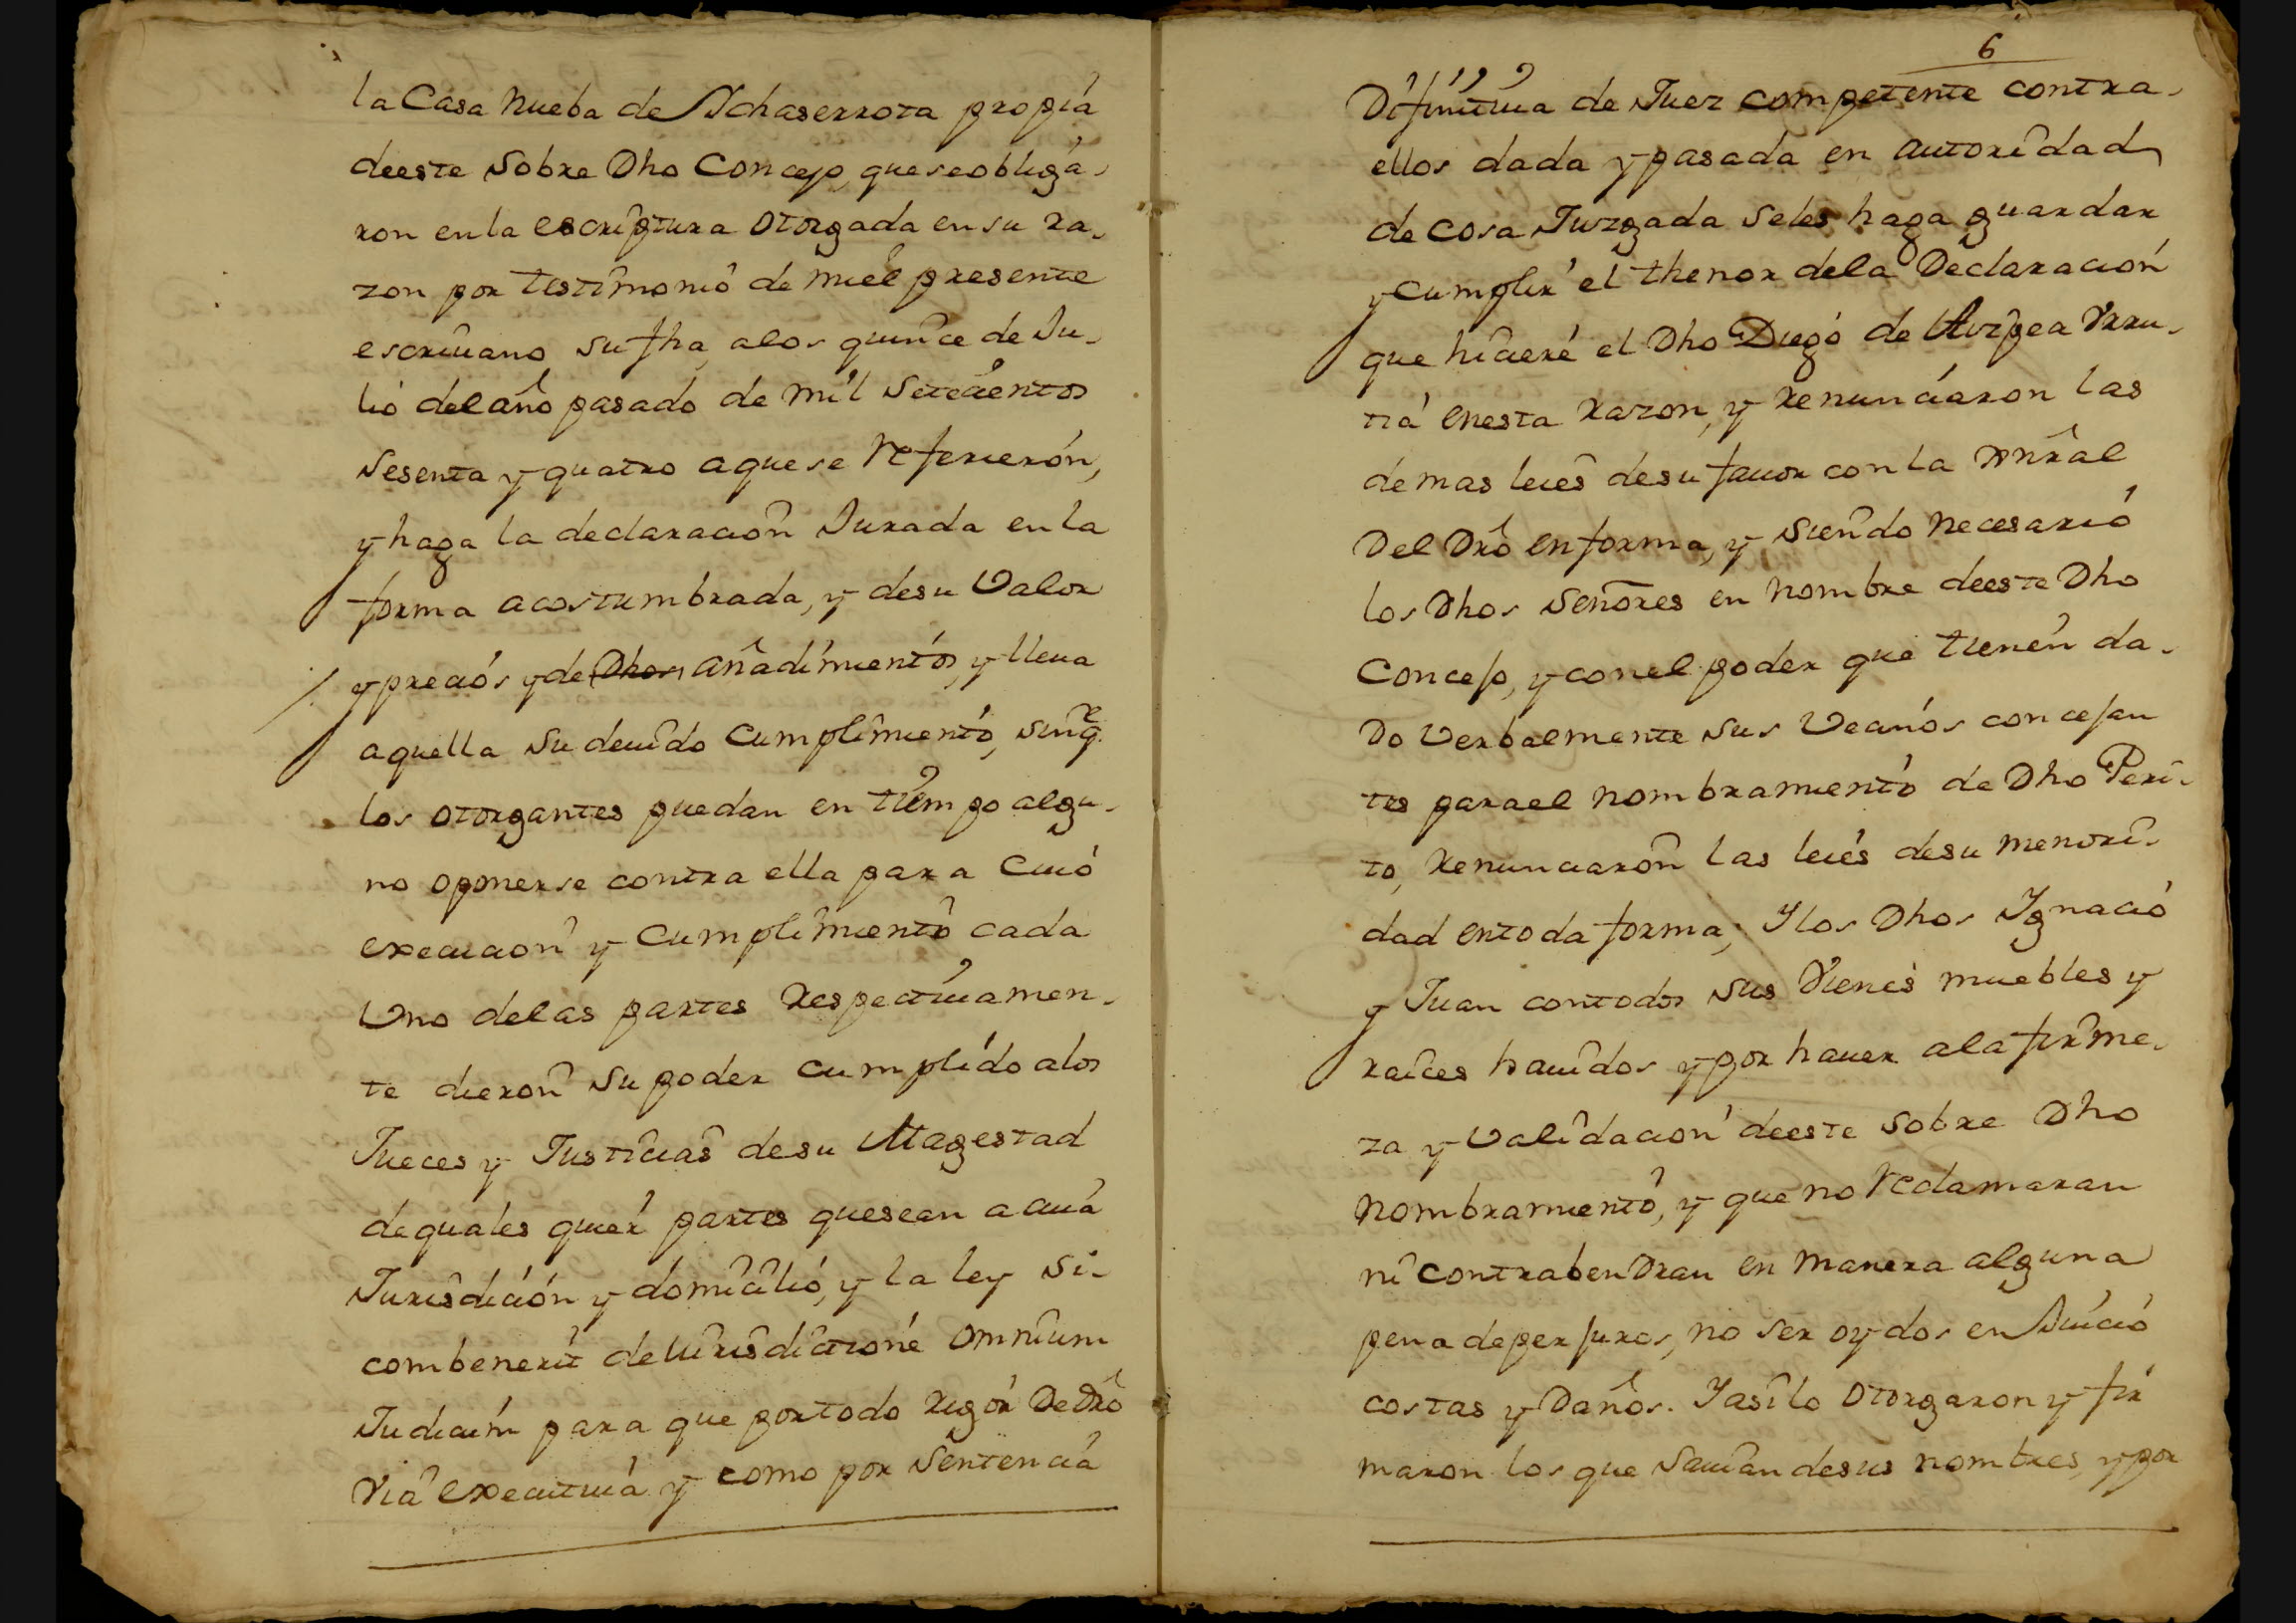 la Casa Nueba de Echaserrota propia
deeste Sobre Dho Concejo, que se obliga-
ron en la escriptura otorgada en su ra-
zon por testimonio de mi el presente
escriuano su fha, a los quince de Ju-
lio del año pasado de mil Setecientos
Sesenta y quatro aque se refirieron,
y haga la declaracion Jurada en la
forma acostumbrada, y de su Valor
y precios y de Dhos añadimientos, y lleua
aquella su deuido Cumplimiento, sin q̃
los otorgantes puedan en tiempo algu-
no oponerse contra ella para Cuio
execucion y Cumplimiento cada
Uno de las partes Respectiuamen-
te dieron su poder cumplido a los
Jueces y Justicias de su Magestad
de quales quier partes que sean a cuia
Jurisdicion y domicilio, y la ley Si-
combenerit de Iurisdictione omnium
Judicim para que por todo rigor De Dro
Via executiua y como por Sentencia
6
Difinitiua de Juez competente contra-
ellos dada y pasada en autoridad
de cosa Juzgada se les haga guardar
y cumplir el thenor de la Declaracion
que hiciere el Dho Diego de Aizpea Urru-
tia en esta razon, y renunciaron las
demas leies de su fauor con la
Del Dro en forma, y siendo necesario
los Dhos Señores en nombre deeste Dho
Concejo, y con el poder que tienen da-
do Verbalmente sus Vecinos concejan
tes para el nombramiento de Dho Peri-
to, renunciaron las leies de su menori-
dad en toda forma, Y los Dhos Ignacio
y Juan con todos sus Vienes muebles y
raices hauidos y por hauer a la firme-
za y Validacion deeste Sobre Dho
nombramiento, y que no reclamaran
ni contrabendran en manera alguna
pena de perjuros, no ser oydos en Juicio
costas y Daños. Y asi lo otorgaron y fir
maron los que sauian de sus nombres, y por